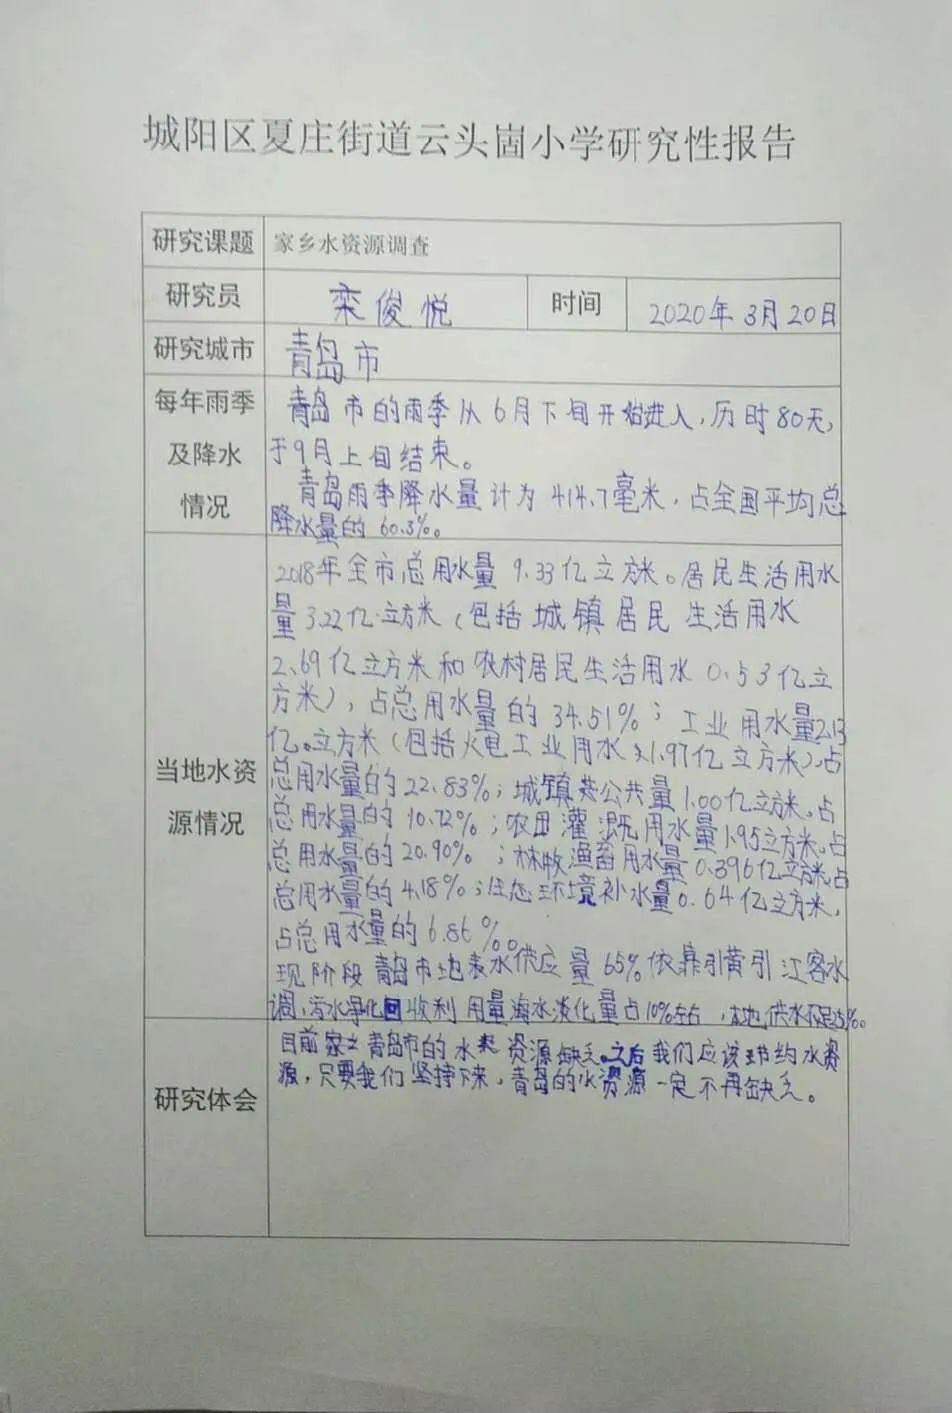 城阳区夏庄街道云头崮小学研究性报告
研究课题 家乡水资源调查
研究员 栾俊悦 时间 2020年3月20日
研究城市 青岛市
每年雨季
及降水
情况
青岛市的雨季从6月下旬开始进入,历时80天,
于9月上旬结束。
青岛雨季降水量计为414.7毫米,占全国平均总
降水量的60.3%。
当地水资
源情况
2018年全市总用水量9.33亿立方米。居民生活用水
量3.22亿立方米(包括城镇居民生活用水
2.69亿立方米和农村居民生活用水0.53亿立
方米),占总用水量的34.51%;工业用水量2.13
亿立方米(包括火电工业用水1.97亿立方米),占
总用水量的22.83%;城镇公共量1.00亿立方米,占
总用水量的10.72%;农田灌溉用水量1.95立方米,占
总用水量的20.90%;林牧渔畜用水量0.396亿立方米,占
总用水量的4.18%;生态环境补水量0.64亿立方米,
占总用水量的6.86%。
现阶段青岛市地表水供应量65%依靠引黄引江客水
调,污水净化回收利用量海水淡化量占10%左右,本地供水不足
研究体会
目前青岛市的水资源缺乏。之后我们应该节约水资
源,只要我们坚持下来,青岛的水资源一定不再缺乏。